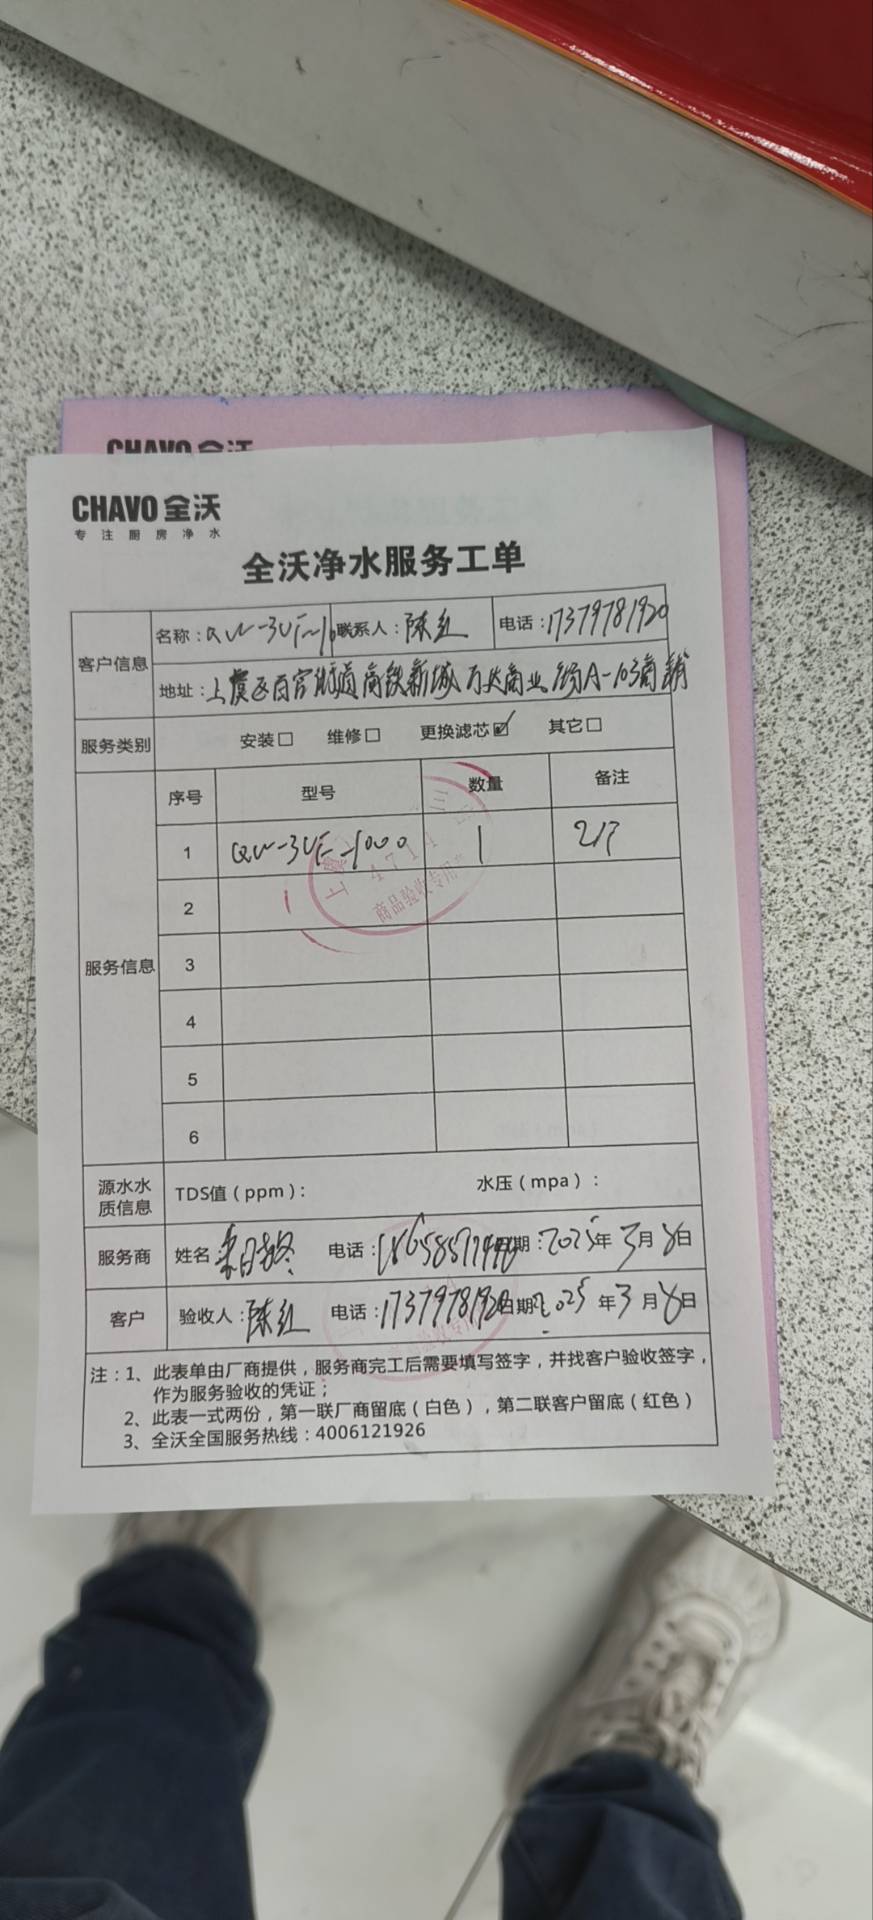 CHAVO 全沃
CHAVO 全沃
专注厨房净水
全沃净水服务工单
客户信息 名称：QW-3UF-1 联系人：陈红 电话：17379781920
地址：上虞区百官街道高铁新城万达商业街A-103商铺
服务类别 安装□ 维修□ 更换滤芯☑ 其它□
服务信息 序号 型号 数量 备注
1 QW-3UF-1000 1
2
3
4
5
6
4714
商品验收专用章
源水水质信息 TDS值（ppm）： 水压（mpa）：
服务商 姓名 电话： 日期：2025年3月8日
客户 验收人：陈红 电话：17379781920 日期：2025年3月8日
注：1、此表单由厂商提供，服务商完工后需要填写签字，并找客户验收签字，
作为服务验收的凭证；
2、此表一式两份，第一联厂商留底（白色），第二联客户留底（红色）
3、全沃全国服务热线：4006121926